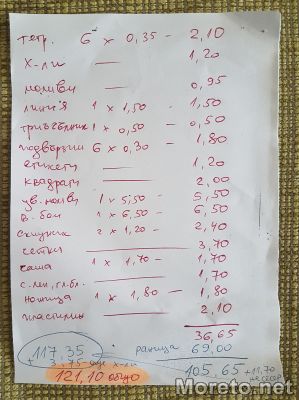 тетр. 6 x 0,35 – 2,10
х-ли — 1,20
моливи — 0,95
линия 1 x 1,50 – 1,50
триъгълник 1 x 0,50 – 0,50
подвързии 6 x 0,30 – 1,80
етикети — 1,20
квадрати — 2,00
цв. моливи 1 x 5,50 – 5,50
в. бои 1 x 6,50 – 6,50
2 x 1,20 – 2,40
четки — 3,70
чаша 1 x 1,70 – 1,70
1,70
ножица 1 x 1,80 – 1,80
пластилин — 2,10
36,65
117,35 раница 69,00
+ 3,75 още х-ли 105,65 + 11,70
121,10 общо
Moreto.net